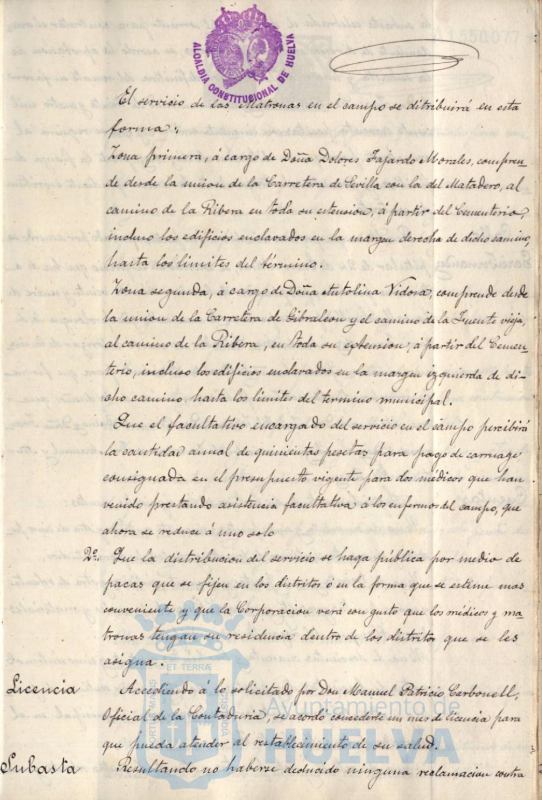 ALCALDIA CONSTITUCIONAL DE HUELVA
El servicio de las Matronas en el campo se ditribuirá en esta
forma:
Zona primera, á cargo de Doña Dolores Fajardo Morales, compren-
de desde la union de la Carretera de Sevilla con la del Matadero, al
camino de la Ribera en toda su extension, á partir del Cementerio,
incluso los edificios enclavados en la margen derecha de dicho camino,
hasta los limites del término.
Zona segunda, á cargo de Doña Antolina Vidosa, comprende desde
la union de la Carretera de Gibraleon y el camino de la Fuente vieja,
al camino de la Ribera, en toda su extension, á partir del Cemen-
terio, incluso los edificios enclavados en la margen izquierda de di-
cho camino, hasta los limites del termino municipal.
Que el facultativo encargado del servicio en el campo percibirá
la cantidad anual de quinientas pesetas para pago de carruage
consignada en el presupuesto vigente para dos médicos que han
venido prestando asistencia facultativa á los enfermos del campo, que
ahora se reduce á uno solo
2º. Que la distribucion del servicio se haga publica por medio de
pacas que se fijen en los distritos ó en la forma que se estime mas
conveniente y que la Corporacion verá con gusto que los médicos y ma-
tronas tengan su residencia dentro de los distritos que se les
asigna.
Licencia Accediendo á lo solicitado por Don Manuel Patricio Carbonell,
Oficial de la Contaduria, se acordó concederle un mes de licencia para
que pueda atender al restablecimiento de su salud.
Subasta Resultando no haberse deducido ninguna reclamacion contra
ET TERRA
Ayuntamiento de
HUELVA